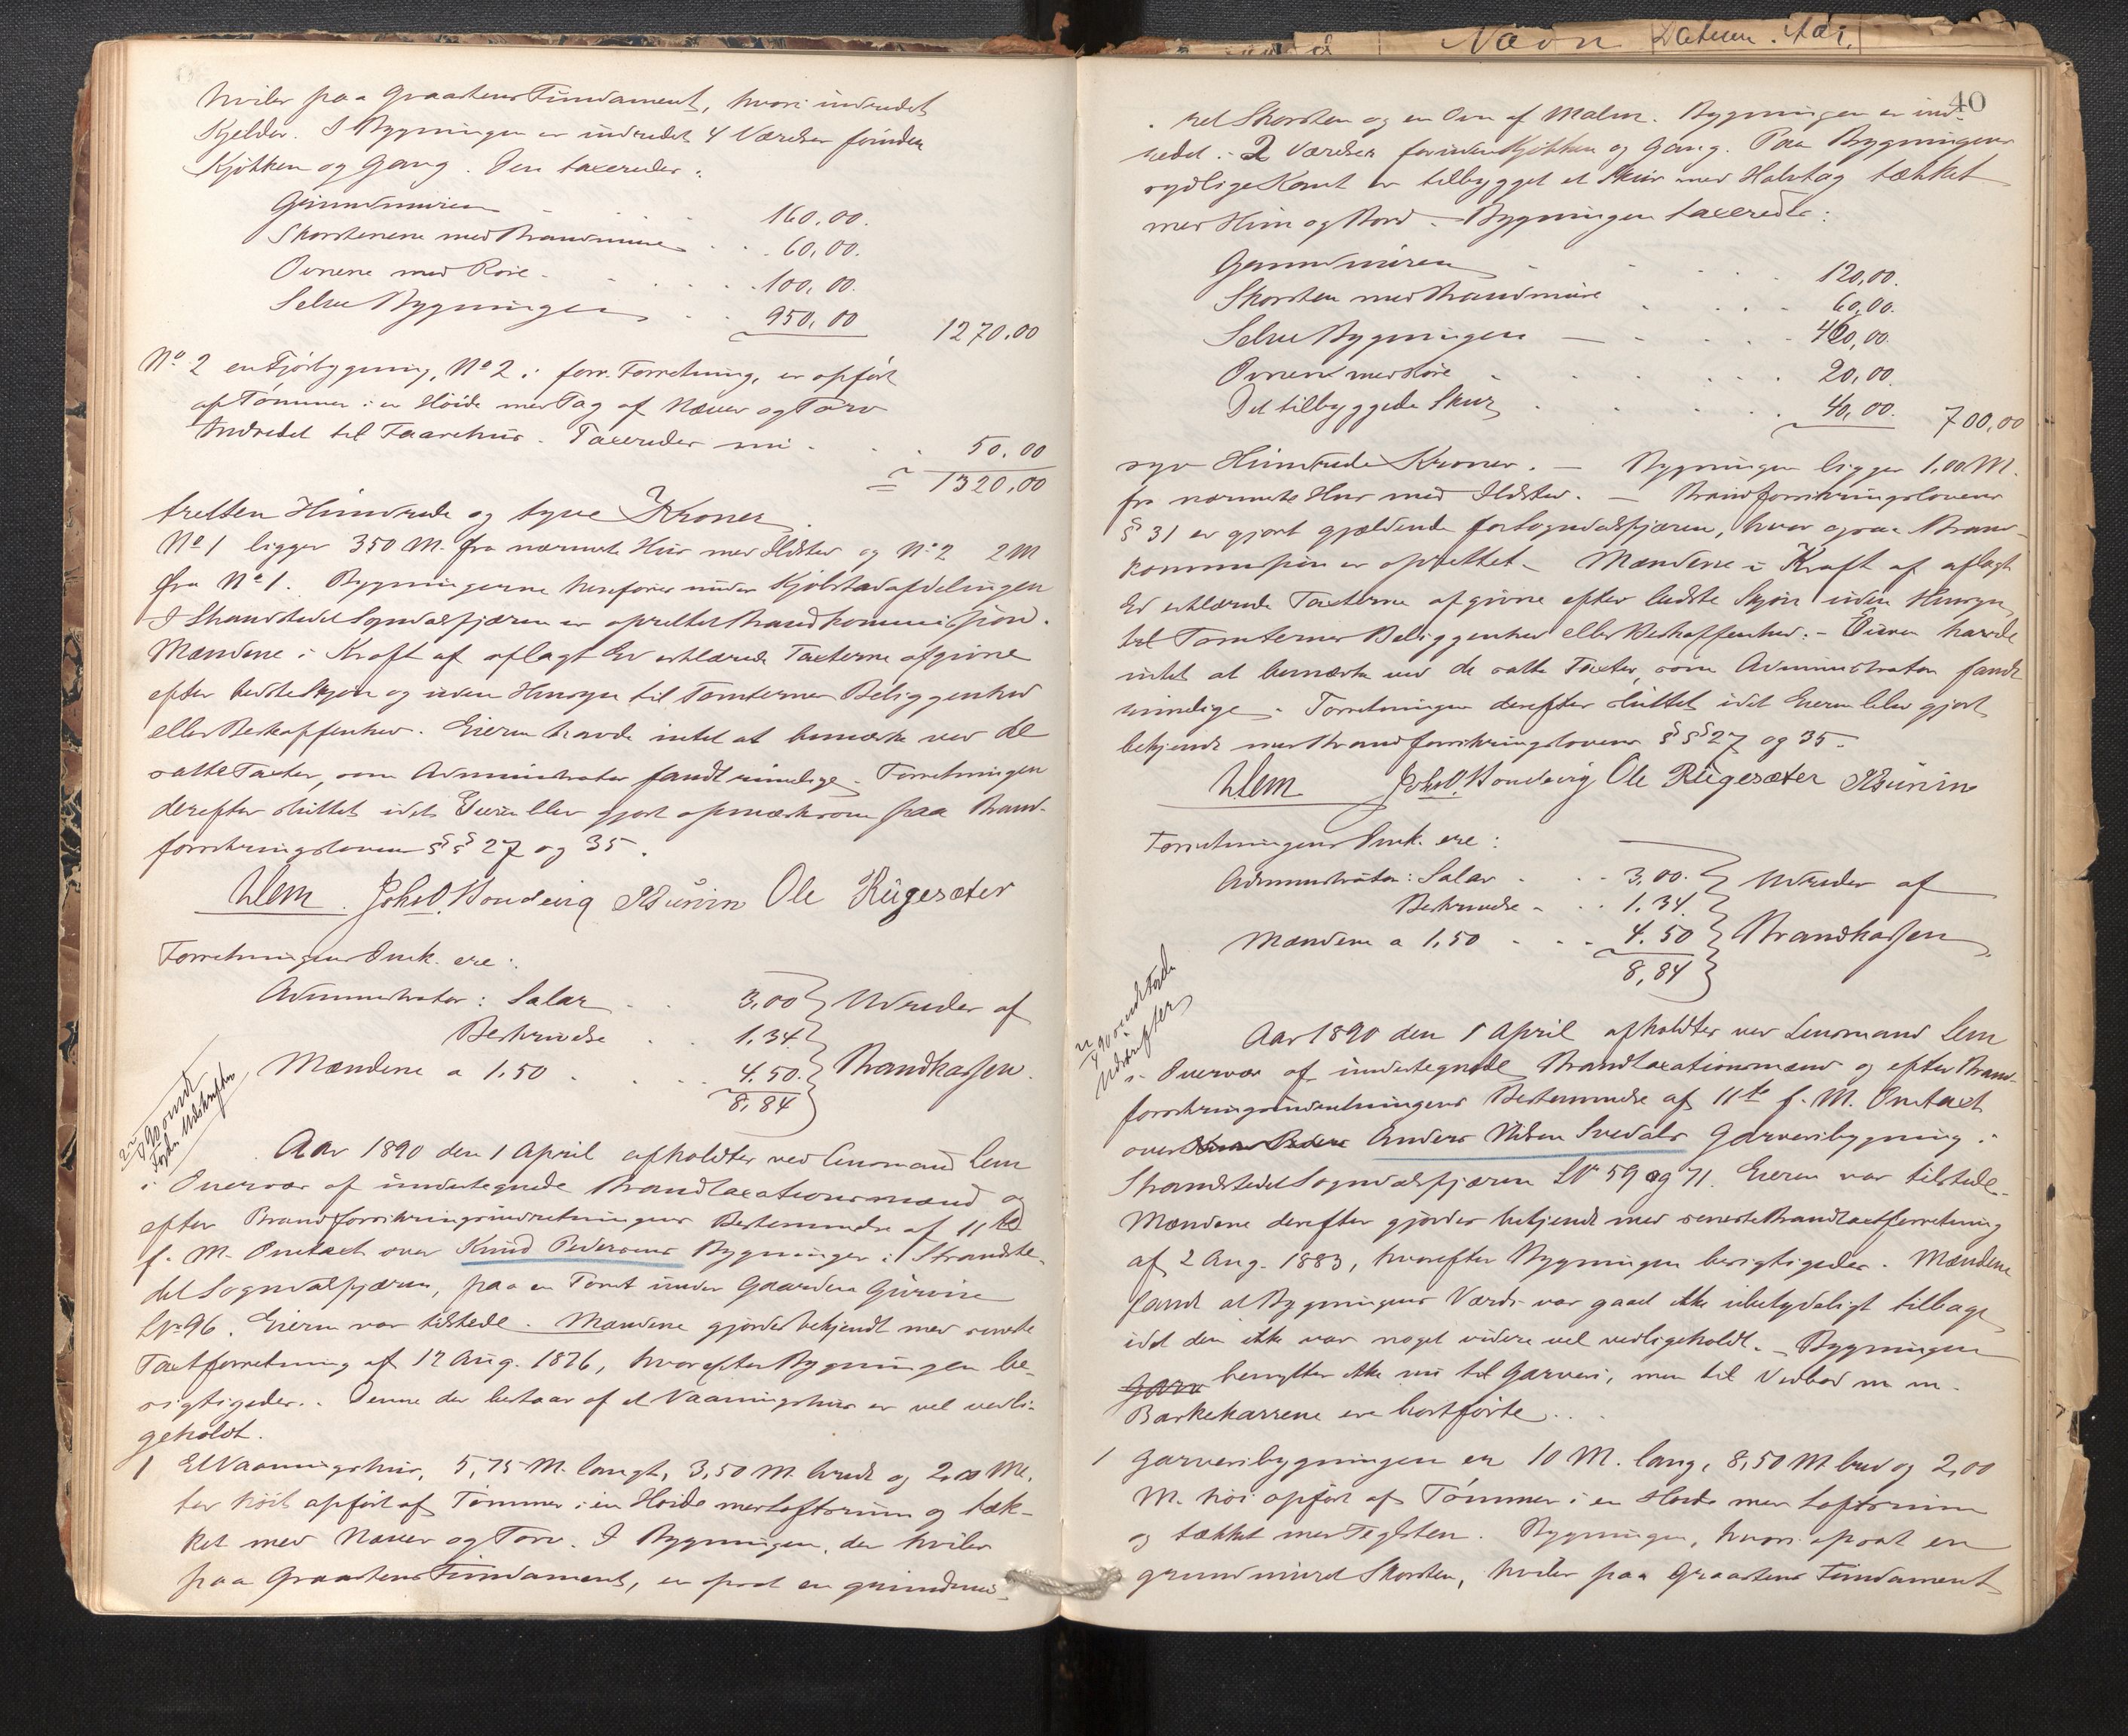 hviler paa Graastens Fundament, hvori indredet
Kjelder. I Bygningen er indredet 4 Værelser foruden
Kjøkken og Gang. Den taxeredes:
Grundmuren 160,00.
Skorstenene med Brandmure 60,00.
Ovnene med Rør 100,00.
Selve Bygningen 950,00 1270,00
No 2 en Fjøsbygning, No 2 i forr. Forretning, er opført
af Tømmer i en Høide med Tag af Næver og Torv
Indredet til Faarehus. Taxeredes nu 50,00
1320,00
tretten Hundrede og tyve Kroner.
No 1 ligger 350 M. fra nærmeste Hus med Ildsted og No 2 2 M
fra No 1. Bygningerne henføres under Kjøbstadafdelingen
I Strandstedet Sogndalsfjæren er oprettet Brandkommission.
Mændene i Kraft af aflagt Ed erklærede Taxterne afgivne
efter bedste Skjøn og uden Hensyn til Tomternes Beliggenhed
eller Beskaffenhed. Eieren havde intet at bemærke ved de
satte Taxter, som Administrator fandt rimelige. Forretningen
derefter sluttet idet Eieren blev gjort opmærksom paa Brand-
forsikringslovens §§ 27 og 35.
Lem Joh. O. Hondevig Ole Rügesæter
Forretningens Omk. ere:
Administrator: Salær 3,00 Udredes af
Beskrivelse 1,34
Mændene a 1,50 4,50 Brandkassen.
8,84
Aar 1890 den 1 April afholdtes ved Lensmand Lem
i Overvær af undertegnede Brandtaxationsmænd og
efter Brandforsikringsindretningens Bestemmelse af 11te
f. M. Omtaxt over Knud Pedersens Bygninger i Strandste-
det Sogndalsfjæren, paa en Tomt under Gaarden
LNo 96. Eieren var tilstede. Mændene gjordes bekjendt med seneste
Taxtforretning af 12 Aug. 1876, hvorefter Bygningen be-
sigtigedes. Denne der bestaar af et Vaaningshus er vel vedli-
geholdt.
1 Et Vaaningshus, 5,75 M. langt, 3,50 M. bredt og 2,00 Me-
ter høit opført af Tømmer i en Høide med Loftsrum og tæk-
ket med Næver og Torv. I Bygningen, der hviler
paa Graastens Fundament, er opsat en grundmu-
Navn Datum Aar.
40
ret Skorsten og en Ovn af Malm. Bygningen er ind-
redet i 2 Værelser foruden Kjøkken og Gang. Paa Bygningens
sydlige Kant er tilbygget et Skur med Halvtag tækket
med Him og Bord. Bygningen taxeredes:
Grundmuren 120,00.
Skorsten med Brandmure 60,00.
Selve Bygningen 460,00.
Ovnene med Rør 20,00.
Det tilbyggede Skur 40,00. 700,00
syv Hundrede Kroner. — Bygningen ligger 1,00 M.
fra nærmeste Hus med Ildsted. — Brandforsikringslovens
§ 31 er gjort gjældende for Sogndalsfjæren, hvor ogsaa Brand-
kommission er oprettet. Mændene i Kraft af aflagt
Ed erklærede Taxterne afgivne efter bedste Skjøn uden Hensyn
til Tomternes Beliggenhed eller Beskaffenhed. - Eieren havde
intet at bemærke ved de satte Taxter, som Administrator fandt
rimelige. Forretningen derefter sluttet idet Eieren blev gjort
bekjendt med Brandforsikringslovens §§ 27 og 35.
Lem Joh. O. Hondevig Ole Rügesæter
Forretningens Omk. ere:
Administrator: Salær 3,00. Udredes af
Beskrivelse 1,34.
Mændene a 1,50 4,50 Brandkassen
8,84
Aar 1890 den 1 April afholdtes ved Lensmand Lem
i Overvær af undertegnede Brandtaxationsmænd og efter Brand-
forsikringsindretningens Bestemmelse af 11te f. M. Omtaxt
over Anders Nilsen Svedals Garveribygning i
Strandstedet Sogndalsfjæren LNo 59 og 71. Eieren var tilstede.
Mændene derefter gjordes bekjendt med seneste Brandtaxtforretning
af 2 Aug. 1883, hvorefter Bygningen besigtigedes. Mændene
fandt at Bygningens Værdi var gaaet ikke ubetydeligt tilbage
idet den ikke var noget videre vel vedligeholdt. - Bygningen
benyttes ikke nu til Garveri, men til Vedbod m m.
Barkekarrene ere bortførte.
1 Garveribygningen er 10 M. lang, 8,50 M bred og 2,00
M. høi opført af Tømmer i en Høide med Loftsrum
og tækket med Teglsten. Bygningen, hvori opsat en
grundmuret Skorsten, hviler paa Graastens Fundament